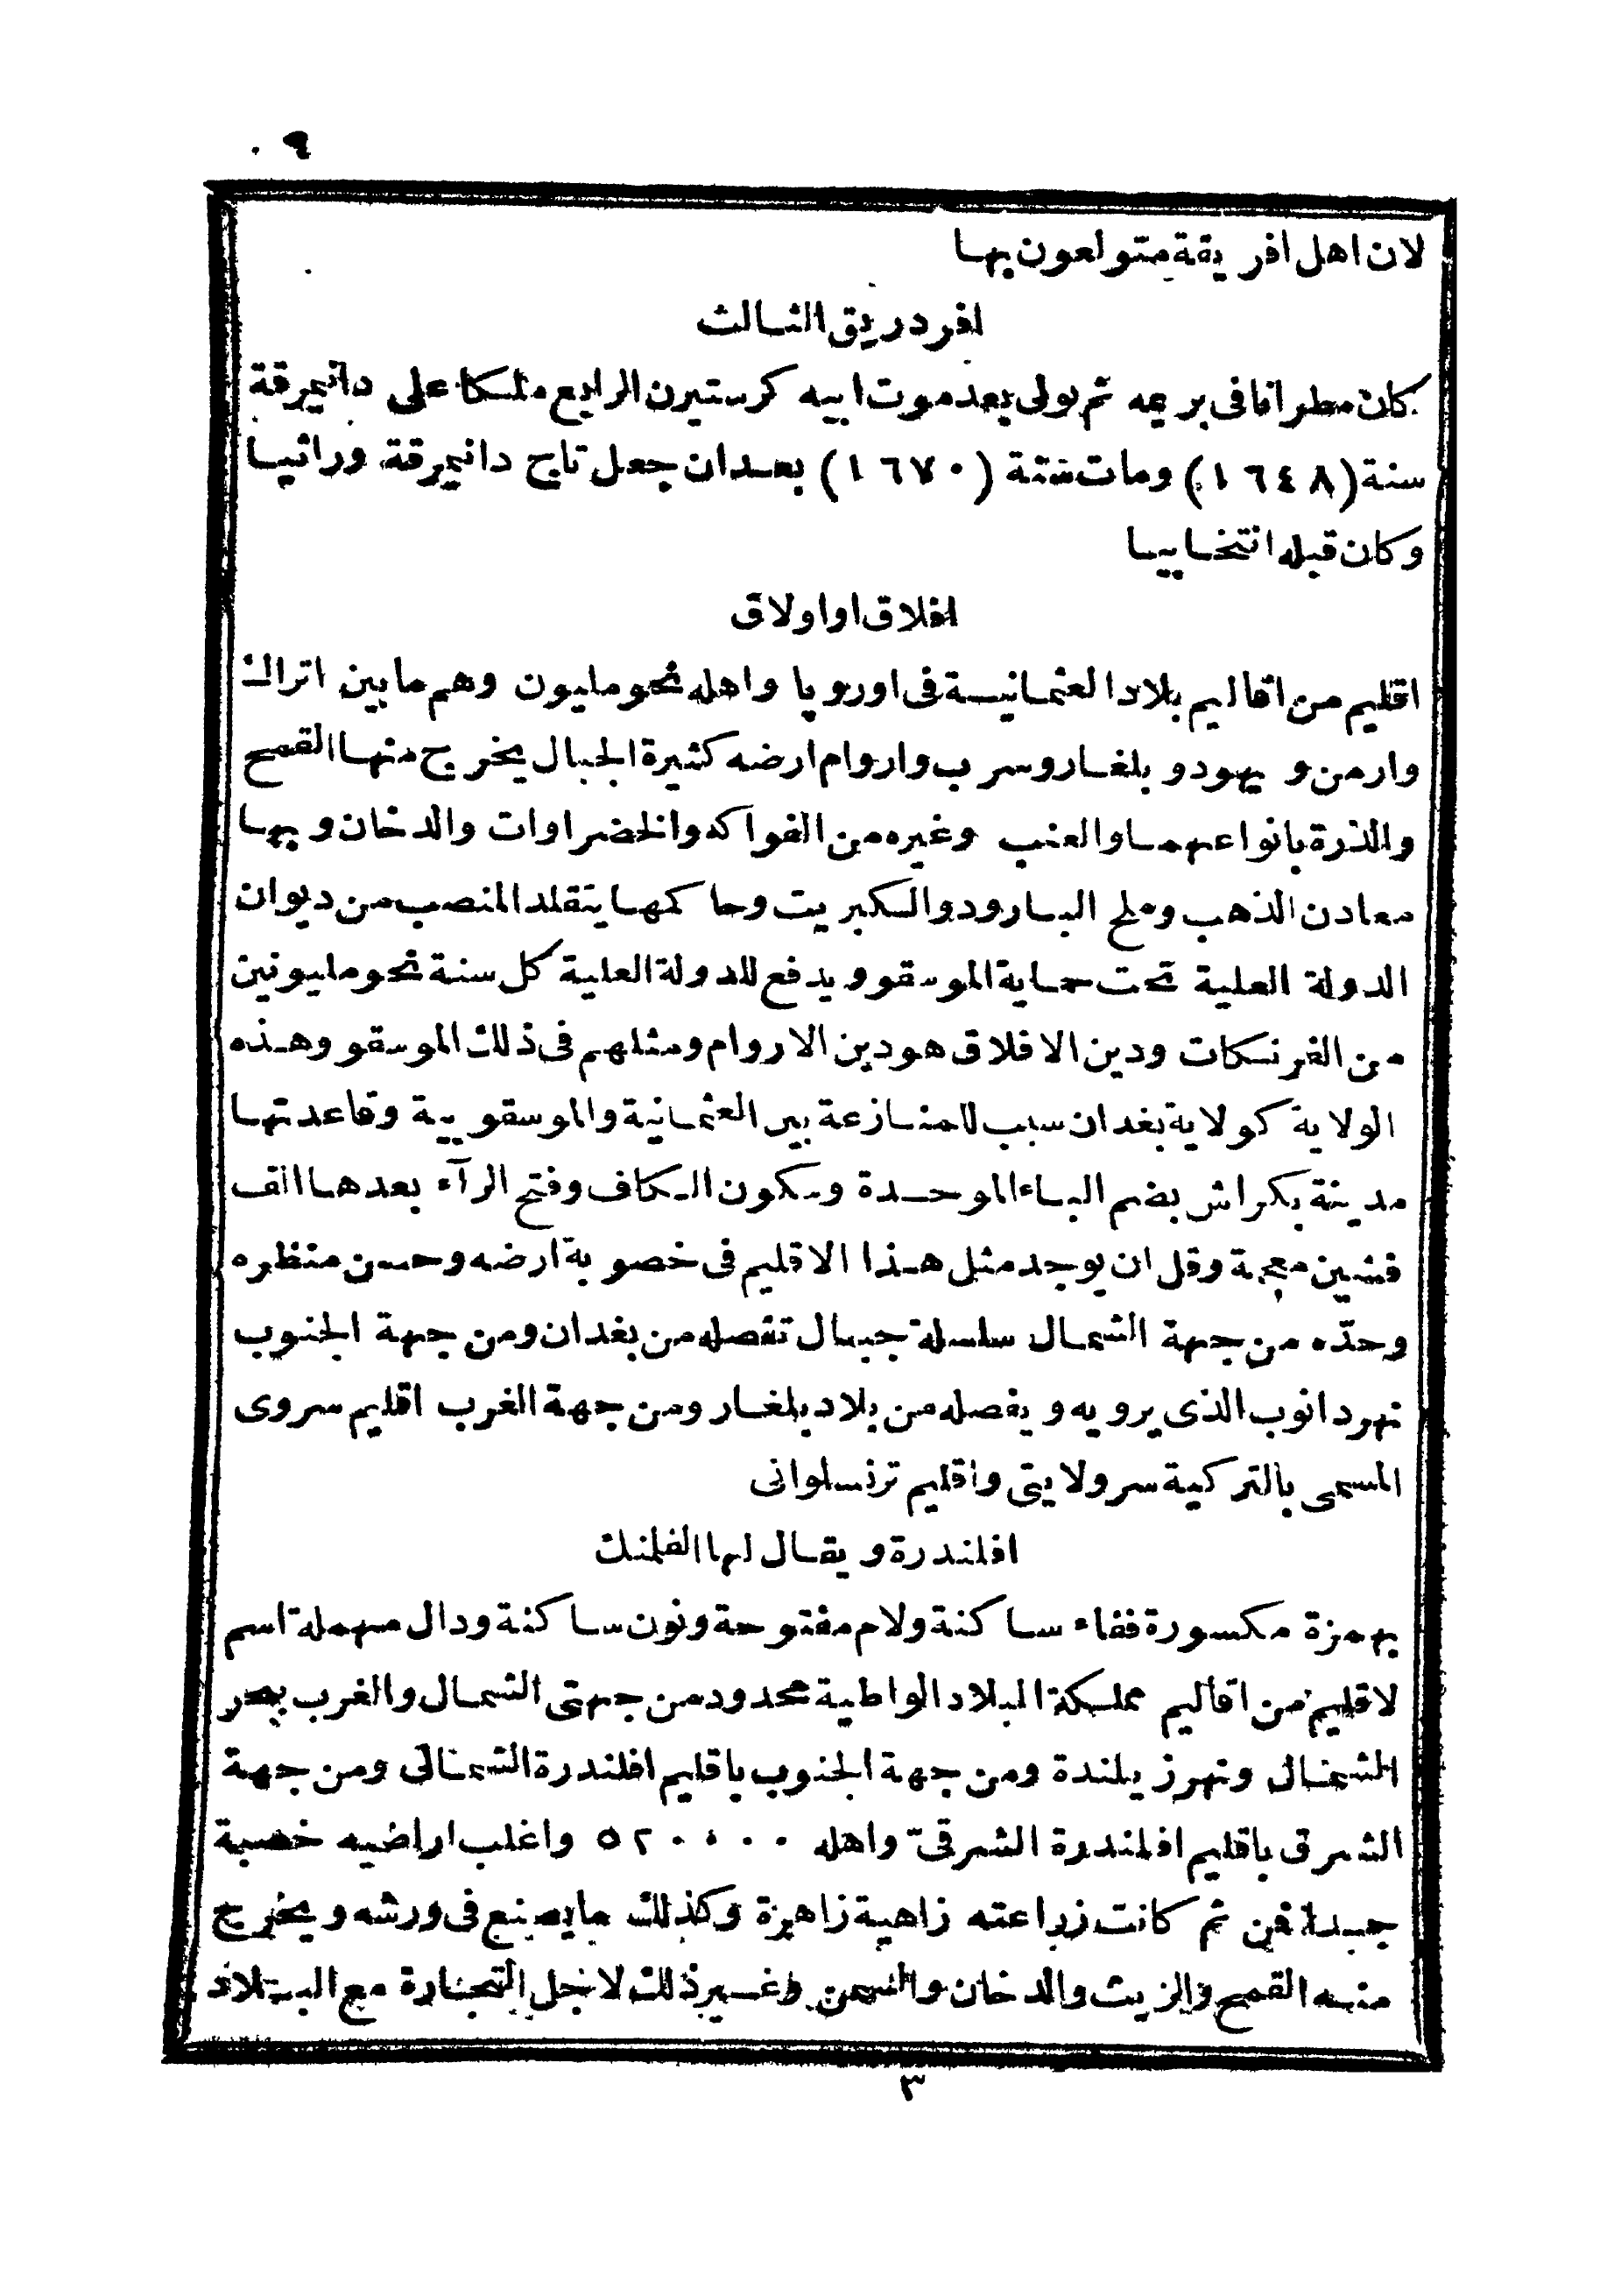 ٩
لان اهل افريقة متولعون بها
افردريق الثالث
كان مطرانا فى بريمه ثم تولى بعد موت ابيه كرستيرن الرابع ملكا على دانيمرقة
سنة (١٦٤٨) ومات سنة (١٦٧٠) بعد ان جعل تاج دانيمرقة وراثيا
وكان قبله انتخابيا
افلاق او اولاق
اقليم من اقاليم بلاد العثمانية فى اوروپا واهله نحو مليون وهم ما بين اتراك
وارمن ويهود وبلغار وسرب واروام ارضه كثيرة الجبال يخرج منها القمح
والذرة بانواعهما والعنب وغيره من الفواكه والخضراوات والدخان وبها
معادن الذهب وملح البارود والكبريت وحاكمها يتقلد المنصب من ديوان
الدولة العلية تحت حماية الموسقو ويدفع للدولة العلية كل سنة نحو مليونين
من الفرنكات ودين الافلاق هو دين الاروام ومثلهم فى ذلك الموسقو وهذه
الولاية كولاية بغدان سبب للمنازعة بين العثمانية والموسقويية وقاعدتها
مدينة بكراش بضم الباء الموحدة وسكون الكاف وفتح الرآء بعدها الف
فشين معجمة وقل ان يوجد مثل هذا الاقليم فى خصوبة ارضه وحسن منظره
وحدّه من جهة الشمال سلسلة جبال تفصله من بغدان ومن جهة الجنوب
نهر دانوب الذى يرويه ويفصله من بلاد بلغار ومن جهة الغرب اقليم سروى
المسمى بالتركية سرولايتى واقليم ترنسلوانى
افلندرة ويقال لها الفلمنك
بهمزة مكسورة ففاء ساكنة ولام مفتوحة ونون ساكنة ودال مهملة اسم
لاقليم من اقاليم مملكة البلاد الواطية محدود من جهتى الشمال والغرب ببحر
الشمال ونهر زيلندة ومن جهة الجنوب باقليم افلندرة الشمالى ومن جهة
الشرق باقليم افلندرة الشرقىّ واهله ٥٢٠٠٠٠ واغلب اراضيه خصبة
جيدا فمن ثم كانت زراعته زاهية زاهرة وكذلك ما يصنع فى ورشه ويخرج
منه القمح والزيت والدخان والسمن وغير ذلك لاجل التجارة مع البلاد
٣